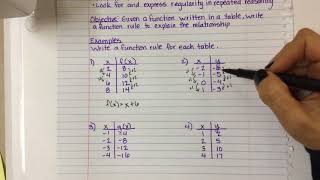 • Look for and express regularity in repeated reasoning
Objective: Given a function written in a table, write
a function rule to explain the relationship
Examples:
Write a function rule for each table.
1) x f(x)
2 8
4 10
6 12
8 14
f(x) = x + 6
2) x y
-2 -6
-1 -5
0 -4
1 -3
3) x g(x)
-1 -4
-2 -8
-3 -12
-4 -16
4) x y
1 2
2 5
3 10
4 17